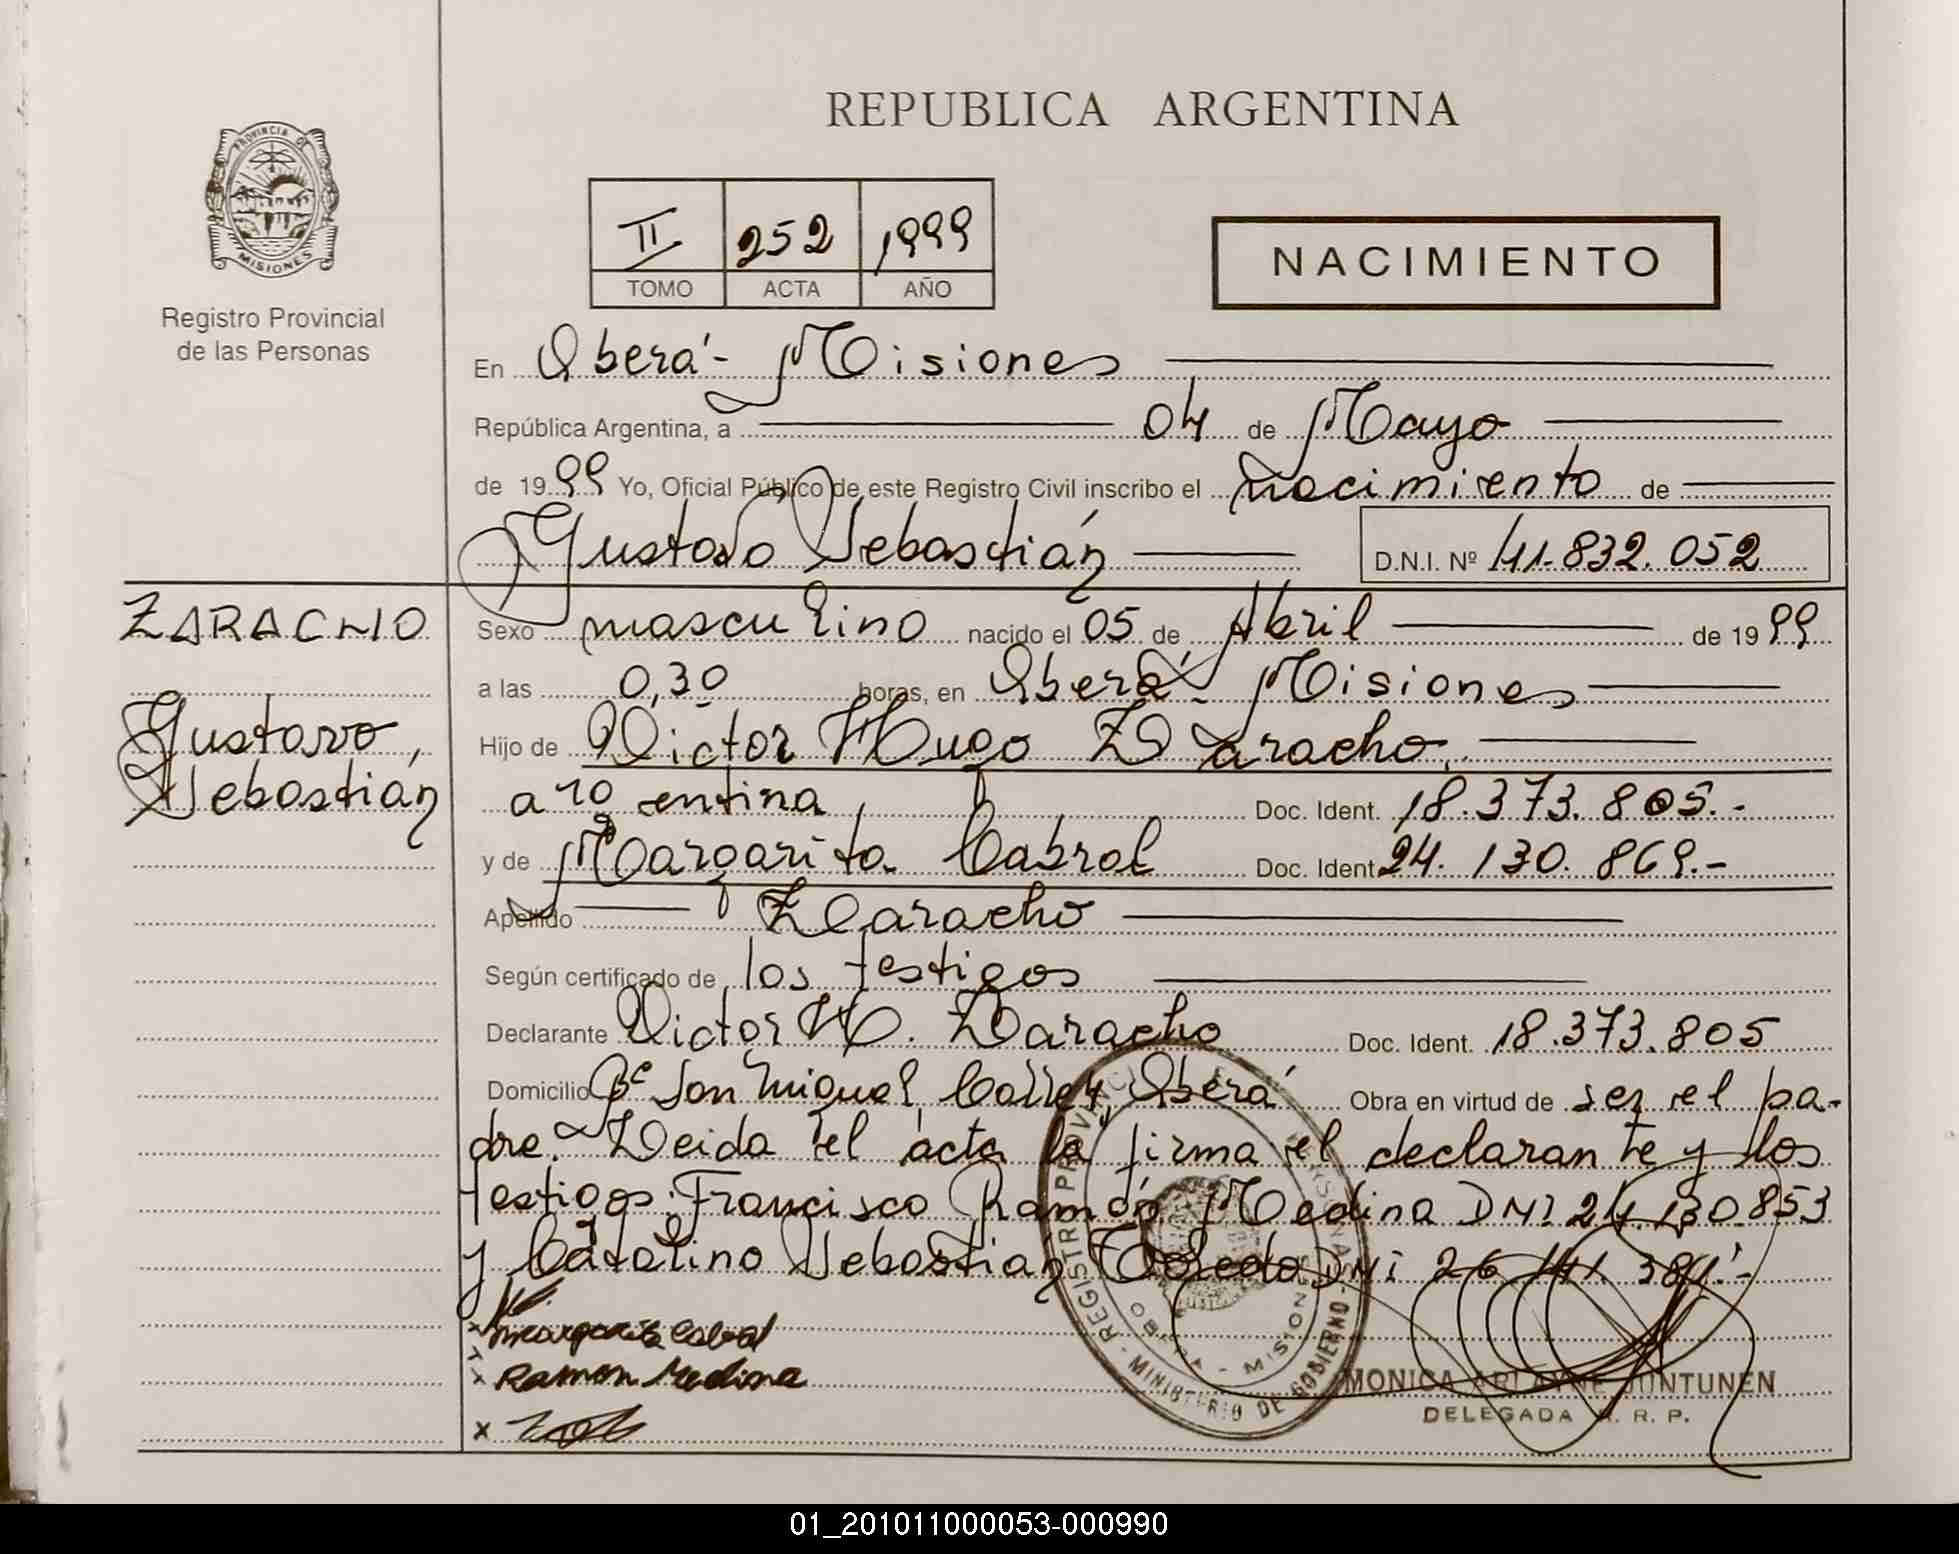 REPUBLICA ARGENTINA
PROVINCIA DE
MISIONES
Registro Provincial
de las Personas
II 252 1999
TOMO ACTA AÑO
NACIMIENTO
En Oberá - Misiones
República Argentina, a 04 de Mayo
de 1999 Yo, Oficial Público de este Registro Civil inscribo el nacimiento de
Gustavo Sebastián D.N.I. Nº 41.832.052
ZARACHO
Gustavo,
Sebastián
Sexo masculino nacido el 05 de Abril de 1999
a las 0,30 horas, en Oberá - Misiones
Hijo de Victor Hugo Zaracho.
argentina Doc. Ident. 18.373.805.-
y de Margarita Cabral Doc. Ident. 24.130.869.-
Apellido Zaracho
Según certificado de los testigos
Declarante Victor H. Zaracho Doc. Ident. 18.373.805
Domicilio Bº San Miguel, Oberá Obra en virtud de ser el pa-
dre. Leida el acta la firma el declarante y los
testigos: Francisco Ramón Medina DNI 24.130.853
y Catalino Sebastián Toledo DNI 26.141.381.-
x Margarita Cabral
x Ramon Medina
x
REGISTRO PROVINCIAL DE LAS PERSONAS - MINISTERIO DE GOBIERNO -
OBERA - MISIONES
MONICA ARLAYNE JUNTUNEN
DELEGADA R. R. P.
01_201011000053-000990